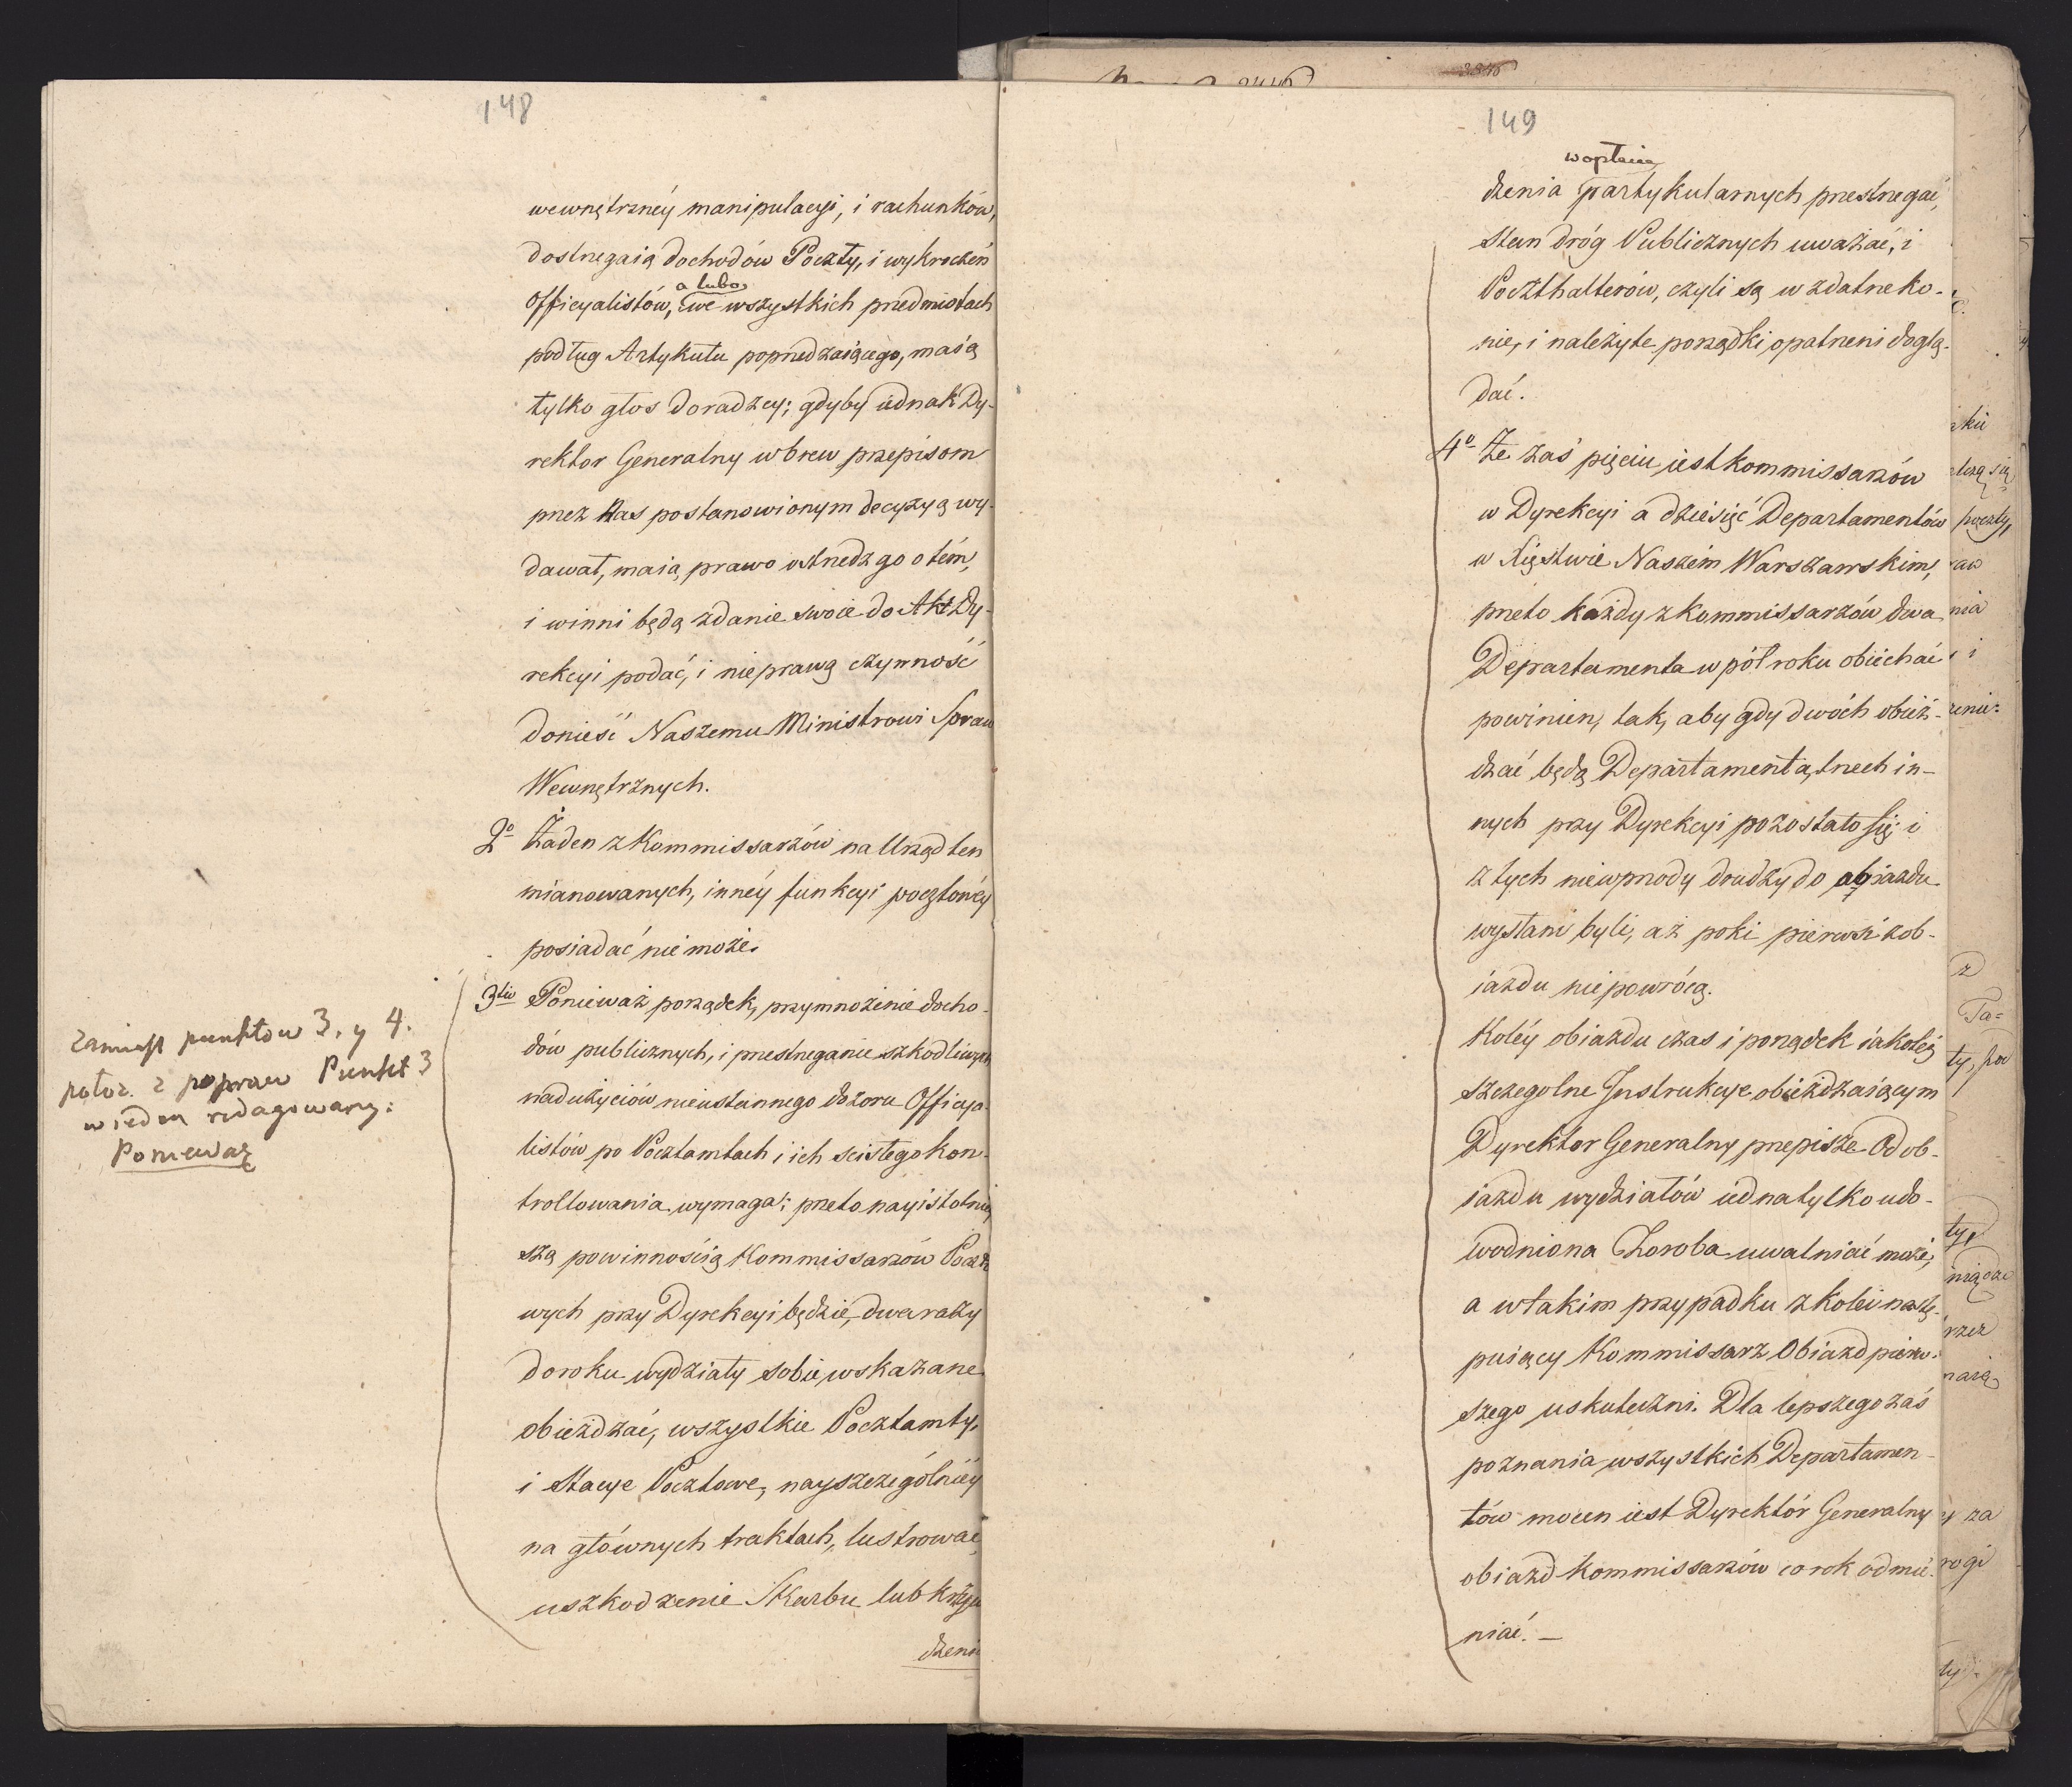 148
wewnętrznéy manipulacyi, i rachunków,
dostrzegaią dochodów Poczty, i wykroczeń
a lubo
Officyalistów, we wszystkich przedmiotach
podług Artykułu poprzedzaiącego, maią
tylko głos doradzcy; gdyby iednak Dy-
rektor Generalny wbrew przepisom
przez Nas postanowionym decyzyą wy-
dawał, maią prawo ostrzedz go o tém,
i winni będą zdanie swoie do Akt Dy-
rekcyi podać, i nieprawą czynność
donieść Naszemu Ministrowi Spraw
Wewnętrznych.
2o Żaden z Kommissarzów na Urząd ten
mianowanych, innéy funkcyi pocztowéy
posiadać nie może.
3tio Ponieważ porządek, przymnożenie docho-
dów publicznych, i przestrzeganie szkodliwych
nadużyciów nieustannego dozoru Officya-
listów po Pocztamtach i ich scisłego kon-
trollowania wymaga; przeto nayistotniey
szą powinnością Kommissarzów Poczto
wych przy Dyrekcyi będzie, dwa razy
do roku wydziały sobie wskazane
obieżdzać, wszystkie Pocztamty,
i Stacye Pocztowe, nayszczególniéy
na głównych traktach, lustrować,
uszkodzenie Skarbu lub krzyw
dzenia
Zamiast punktow 3. y 4.
położ. z popraw Punkt 3
w ieden redagowany:
Ponieważ
149
w opłacie
dzenia partykularnych przestrzegać,
Stan dróg Publicznych uważać, i
Poczthalterów, czyli są w zdatne ko-
nie, i należyte porządki opatrzeni doglą-
dać.
4o Że zaś pięciu iest kommissarzów
w Dyrekcyi a dziesięć Departamentów
w Xięstwie Naszém Warszawskim,
przeto każdy z kommissarzów dwa
Departamenta w pół roku obiechać
powinien, tak, aby gdy dwóch obież-
dzać będą Departamenta, trzech in-
nych przy Dyrekcyi pozostało się i
z tych niewprzody drudzy do obiazdu
wysłani byli, aż poki pierwsi z ob-
iazdu niepowrócą.
Koléy obiazdu czas i porządek iakoteż
szczegolne Instrukcye obieżdzaiącym
Dyrektor Generalny przepisze. Od ob-
iazdu wydziałów iedna tylko udo-
wodniona Choroba uwalniać może,
a w takim przypadku z kolei nastę-
puiący Kommissarz Obiazd pierw-
szego uskuteczni. Dla lepszego zaś
poznania wszystkich Departamen-
tów mocen iest Dyrektór Generalny
obiazd Kommissarzów co rok odmie-
niać. —